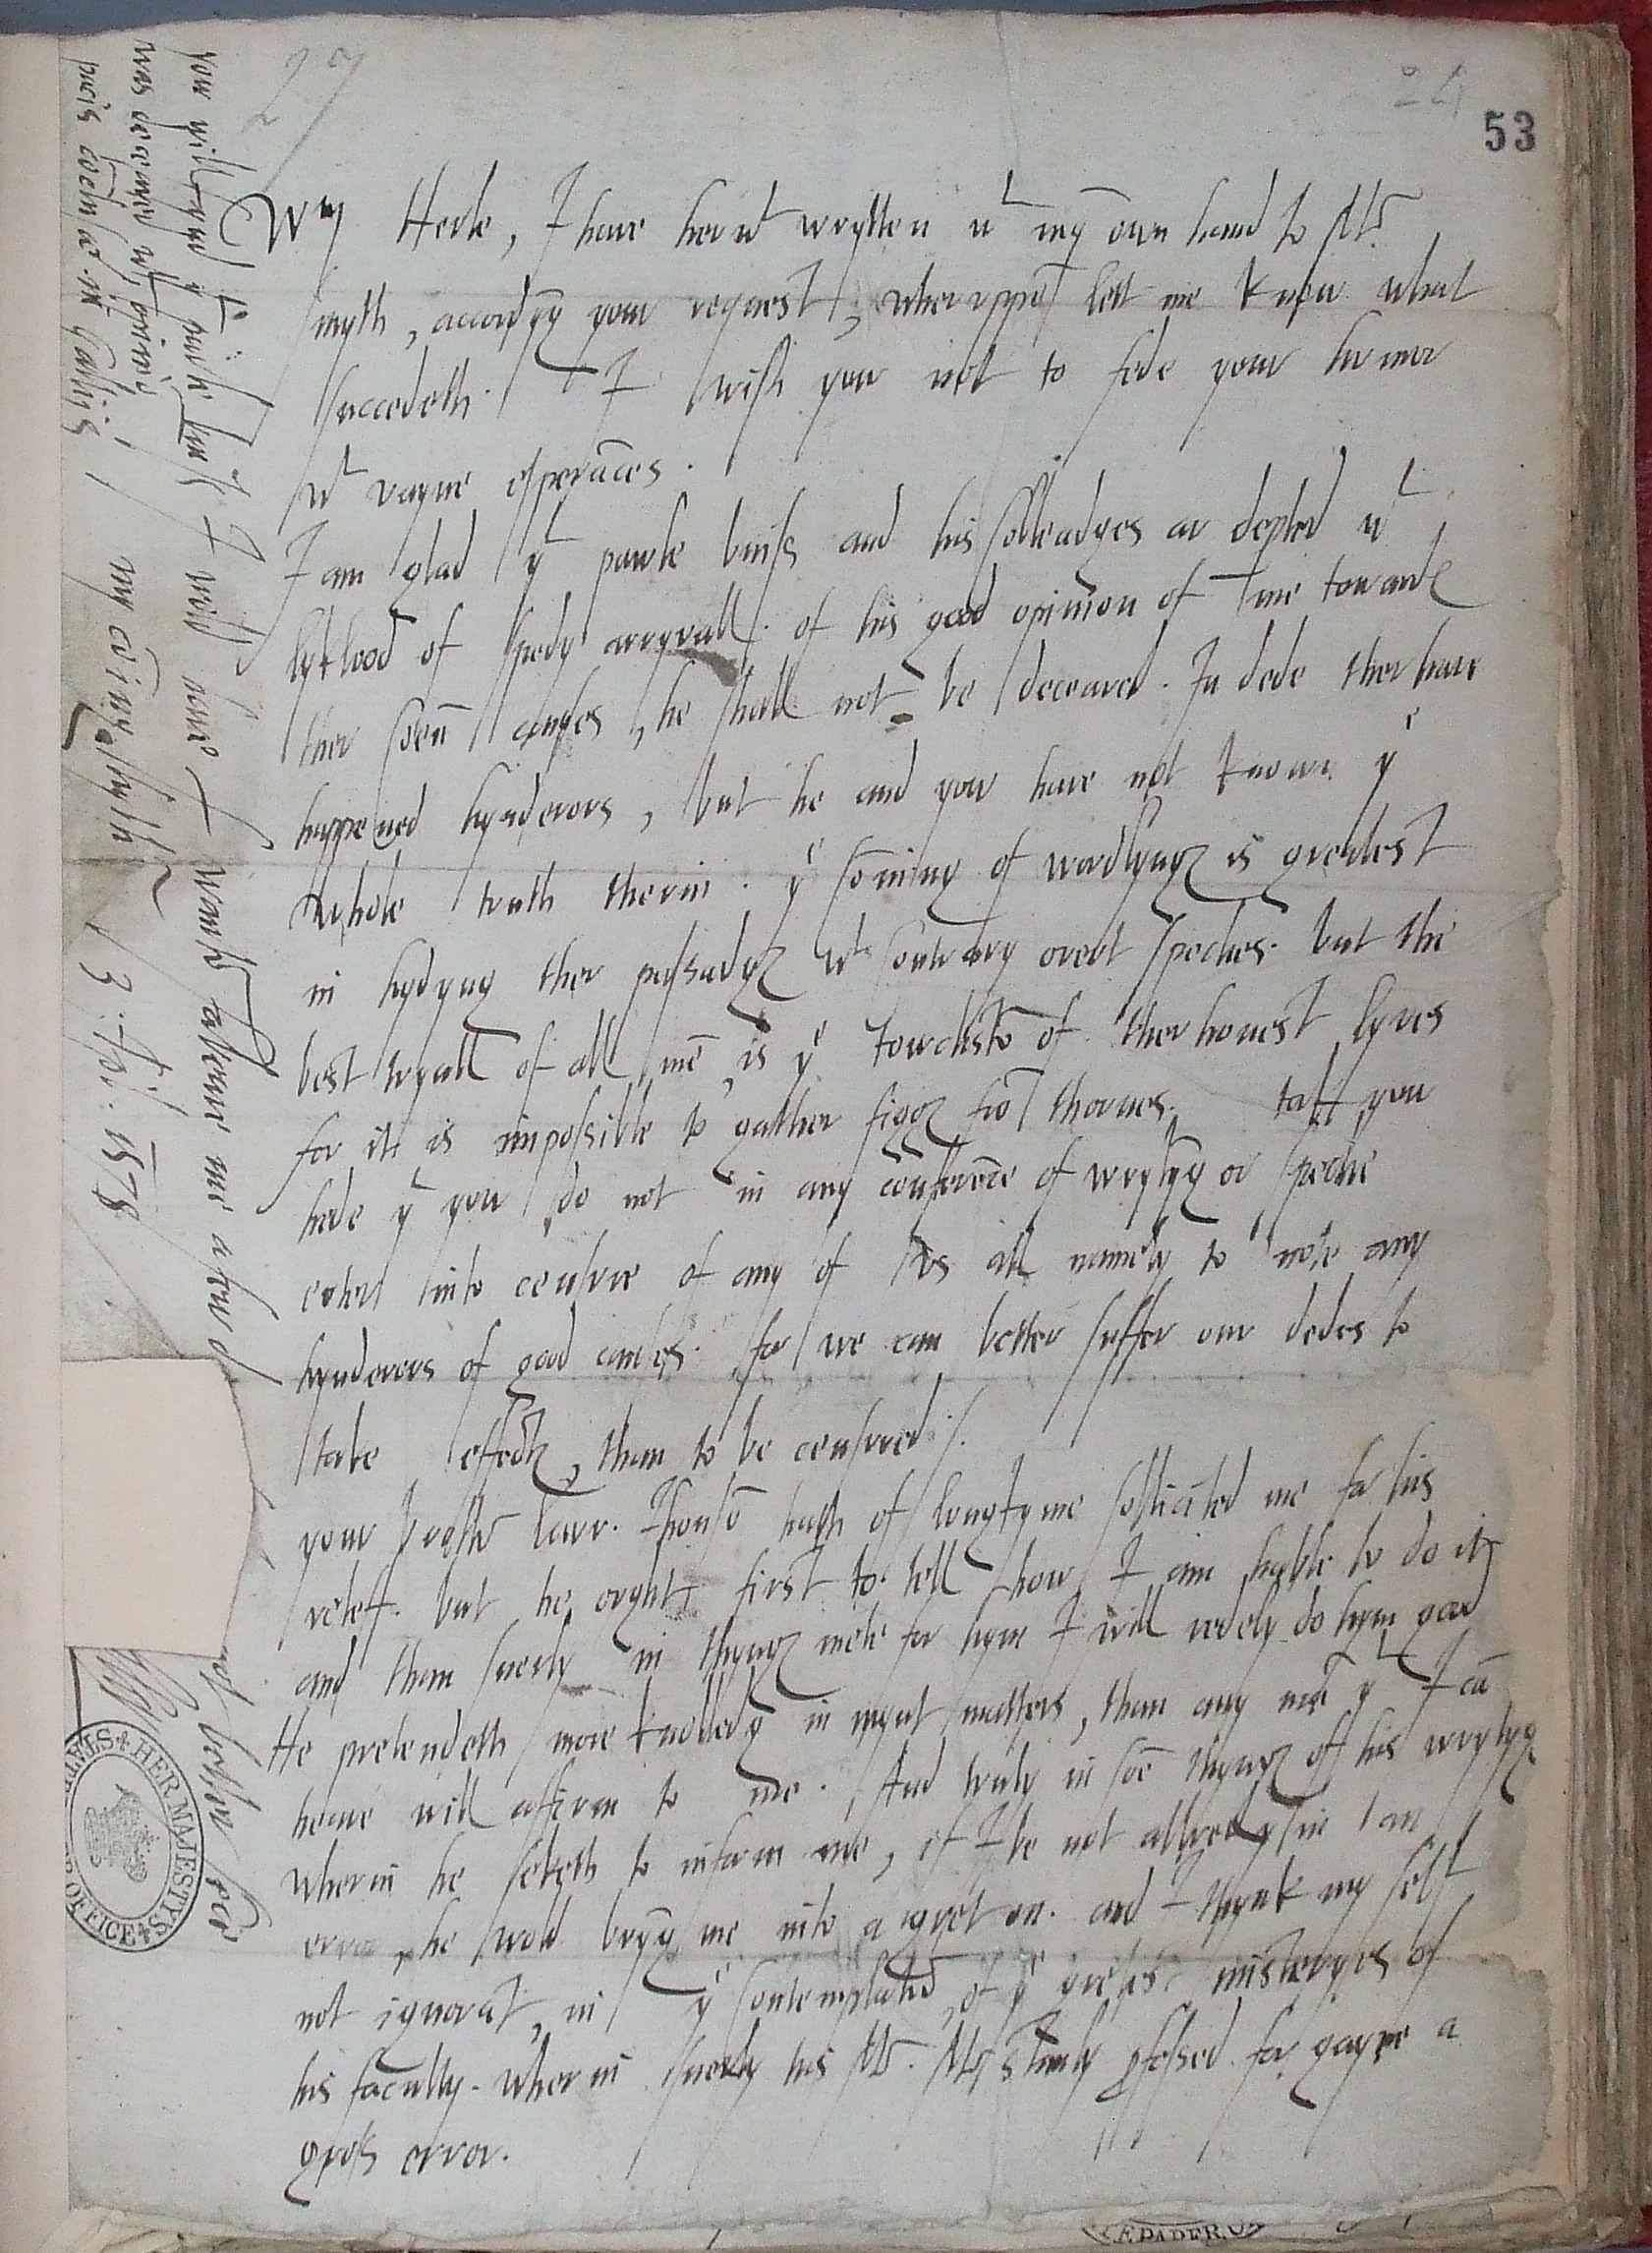 27
24
53
Wm Herle, I have herwt wrytten wt my own hand to Mr
smyth, accordyg your request, wheruppō lett me know what
succedeth. I wish yow not to fede your humor
wt vayne esperāces.
I am glad yt pawle buiss and his colleadges ar depted wt
lyklood of spedy arryvall. of his good opinion of me toward
ther comū causes, he shall not be deceaved. In dede ther have
happened hynderors, but he and yow have not knowen ye
whole truth therin. ye coming of wordlyngs is gretest
in hydyng ther passadgs wt contrary overt speches. but the
best tryall of all mē, is ye towchstō of ther honest lyves
for it is impossible to gather figgs frō thornes. tak yow
hede yt yow do not in any cōferēce of wrytyg or speche
enter into censure of any of vs all namely to note any
hynderors of good causes. for we can better suffer our dedes to
take effects, than to be censured /.
your brother Lawr. Thomsō hath of longtyme sollicited me for his
releff. but he ought first to tell how I am hable to do it
and than suerly in thyngs mete for hym I will redely do hym good
He pretendeth more knolledg in mynt matters, than any mā yt I cā
heare will affirm to me. And truly in sōe thyngs of his wrytyg
wherin he seketh to inform me, if I be not allredy in an
error, he wold bryg me into a gret on. and I thynk my self
not ignorāt, in ye contemplatiō of ye gretest misteryes of
his faculty. wherin suerly his Mr. Mr Stanly pfessed for gayne a
gross error.
yow will pard yt parte this I will have I wāt above me a hed
was occupyed wt prīcis
pacis coēndæ in Gallijs /
my cōīg / 3. Fol. 1578
HER MAJESTY'S STATE PAPER OFFICE
E PAPER O